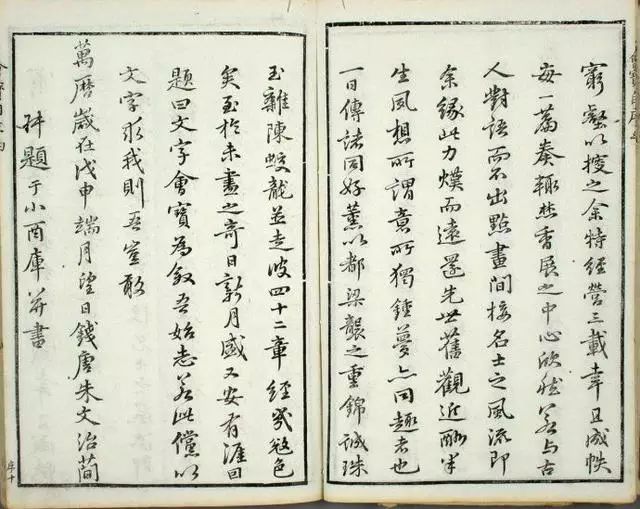 窮壑以搜之余特經營三載幸且成帙
每一篇奏輒焚香展之中心欣然若與古
人對語而不出點畫間接名士之風流即
余緣此力模而遠還先世舊觀近酬半
生風想所謂意所獨鍾夢亦同趣者也
一日傳諸同好薰以都梁襲之重錦誠珠
玉雜陳蛟龍並走彼四十二章經瓷絕色
矣至於未盡之奇日新月盛又安有涯曰
題曰文字會寶為敘吾始志若此儻以
文字求我則吾豈敢
萬曆歲在戊申端月望日錢唐朱文治簡
叔題于小酉庫并書
序十